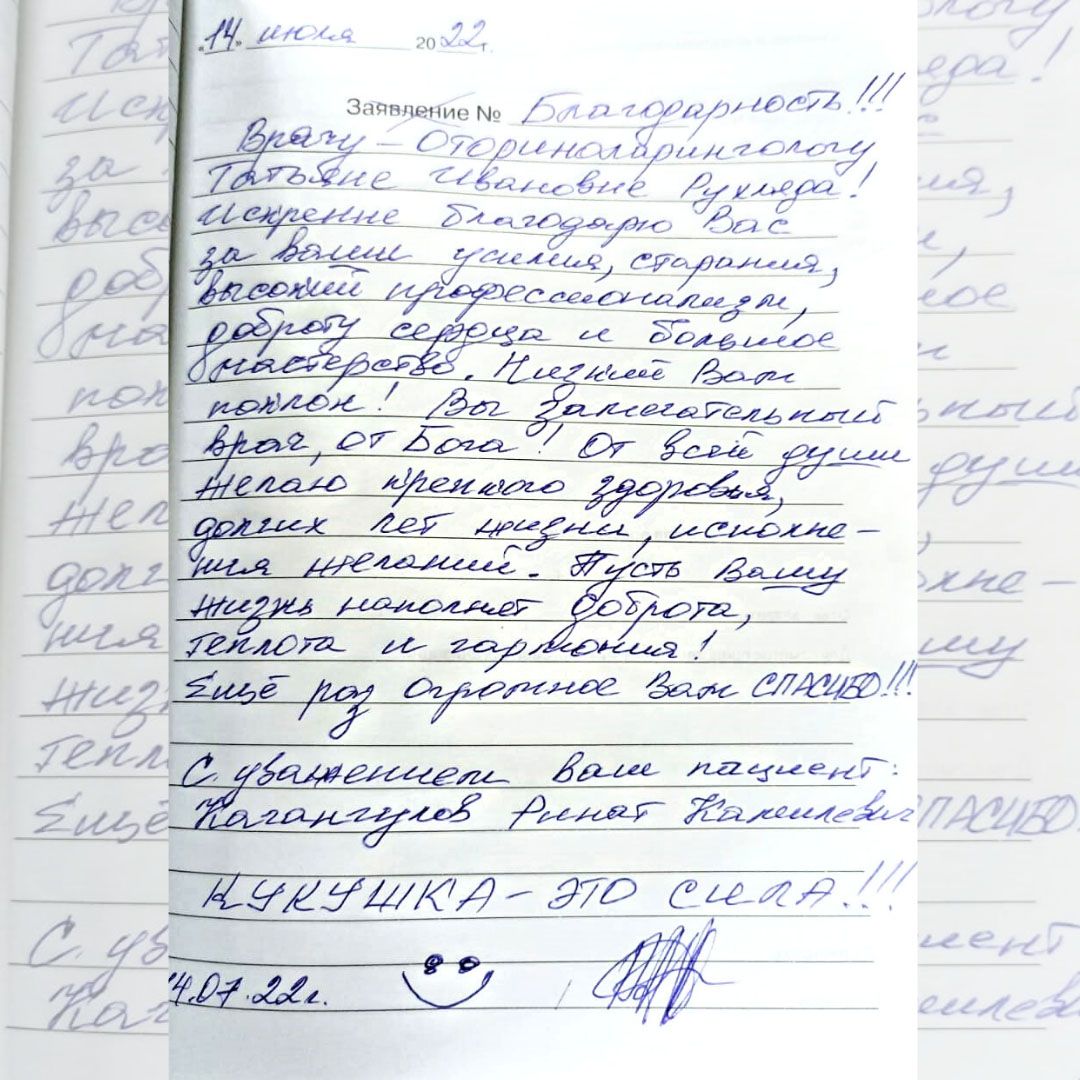 «14» июля 2022г.
Заявление № Благодарность!!!
Врачу – Оториноларингологу
Татьяне Ивановне Рухляда!
Искренне благодарю Вас
за ваши усилия, старания,
высокий профессионализм,
доброту сердца и большое
мастерство. Низкий Вам
поклон! Вы замечательный
врач, от Бога! От всей души
желаю крепкого здоровья,
долгих лет жизни, исполне-
ния желаний. Пусть Вашу
жизнь наполнят доброта,
теплота и гармония!
Ещё раз огромное Вам СПАСИБО!!!
С уважением ваш пациент:
Кагангулов Ринат Камилевич
КУКУШКА – ЭТО СИЛА!!!
14.07.22г.